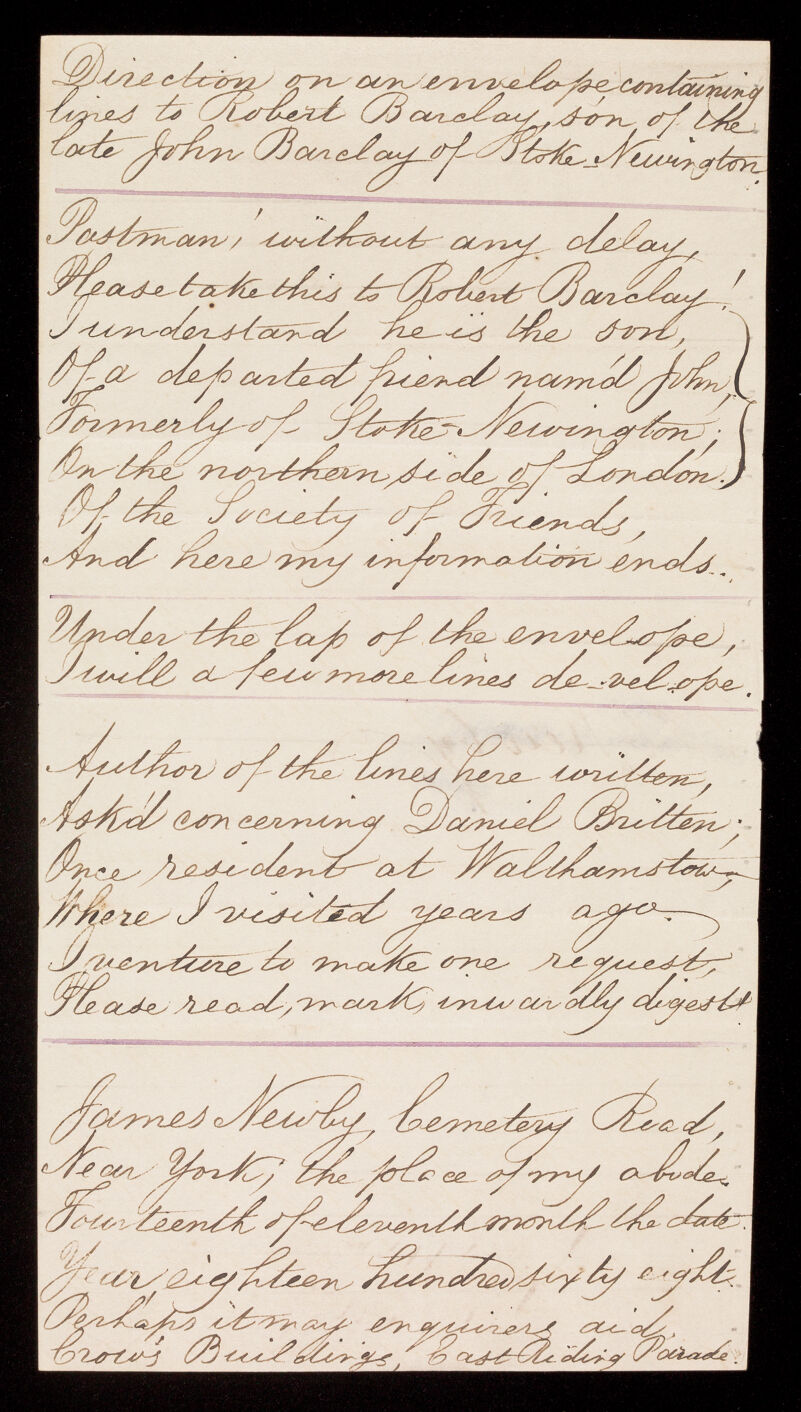 Direction on an envelope containing
lines to Robert Barclay, son of the
late John Barclay of Stoke-Newington.
Postman! without any delay,
Please take this to Robert Barclay!
I understand he is the son,
Of a departed friend nam'd John,
Formerly of Stoke-Newington;
On the northern side of London.
Of the Society of Friends,
And here my information ends..
Under the lap of the envel-ope,
I will a few more lines de-vel-ope.
Author of the lines here written,
Ask'd concerning Daniel Britten;
Once resident at Walthamstow,
Where I visited years ago.
I venture to make one request,
Please read, mark, inwardly digest!
James Newby, Cemetery Road,
Near York; the place of my abode.
Fourteenth of eleventh month the date.
Year, eighteen hundred sixty eight.
Perhaps it may enquirers aid,
Crow's Buildings, East Riding Parade.